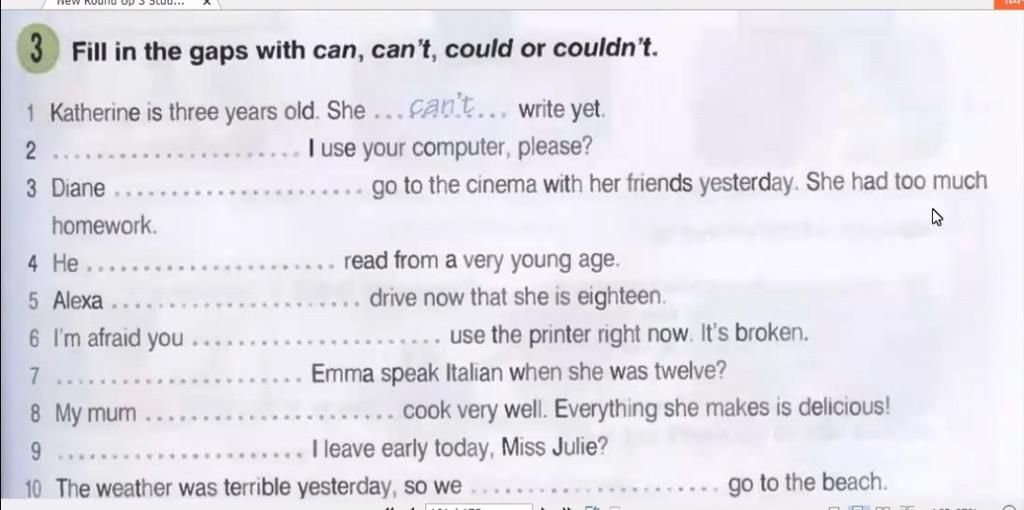 3 Fill in the gaps with can, can't, could or couldn't.
1 Katherine is three years old. She ...can't... write yet.
2 ........................ I use your computer, please?
3 Diane ........................ go to the cinema with her friends yesterday. She had too much
homework.
4 He ........................ read from a very young age.
5 Alexa ........................ drive now that she is eighteen.
6 I'm afraid you ........................ use the printer right now. It's broken.
7 ........................ Emma speak Italian when she was twelve?
8 My mum ........................ cook very well. Everything she makes is delicious!
9 ........................ I leave early today, Miss Julie?
10 The weather was terrible yesterday, so we ........................ go to the beach.